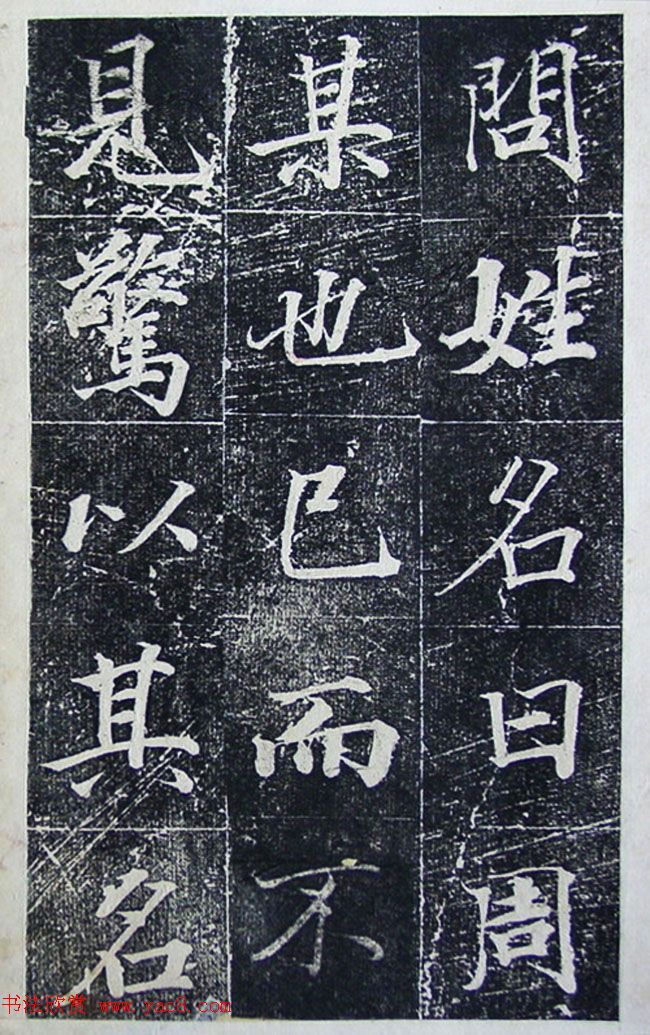 問姓名曰周
某也已而不
見驚以其名
书法欣赏 www.yac8.com